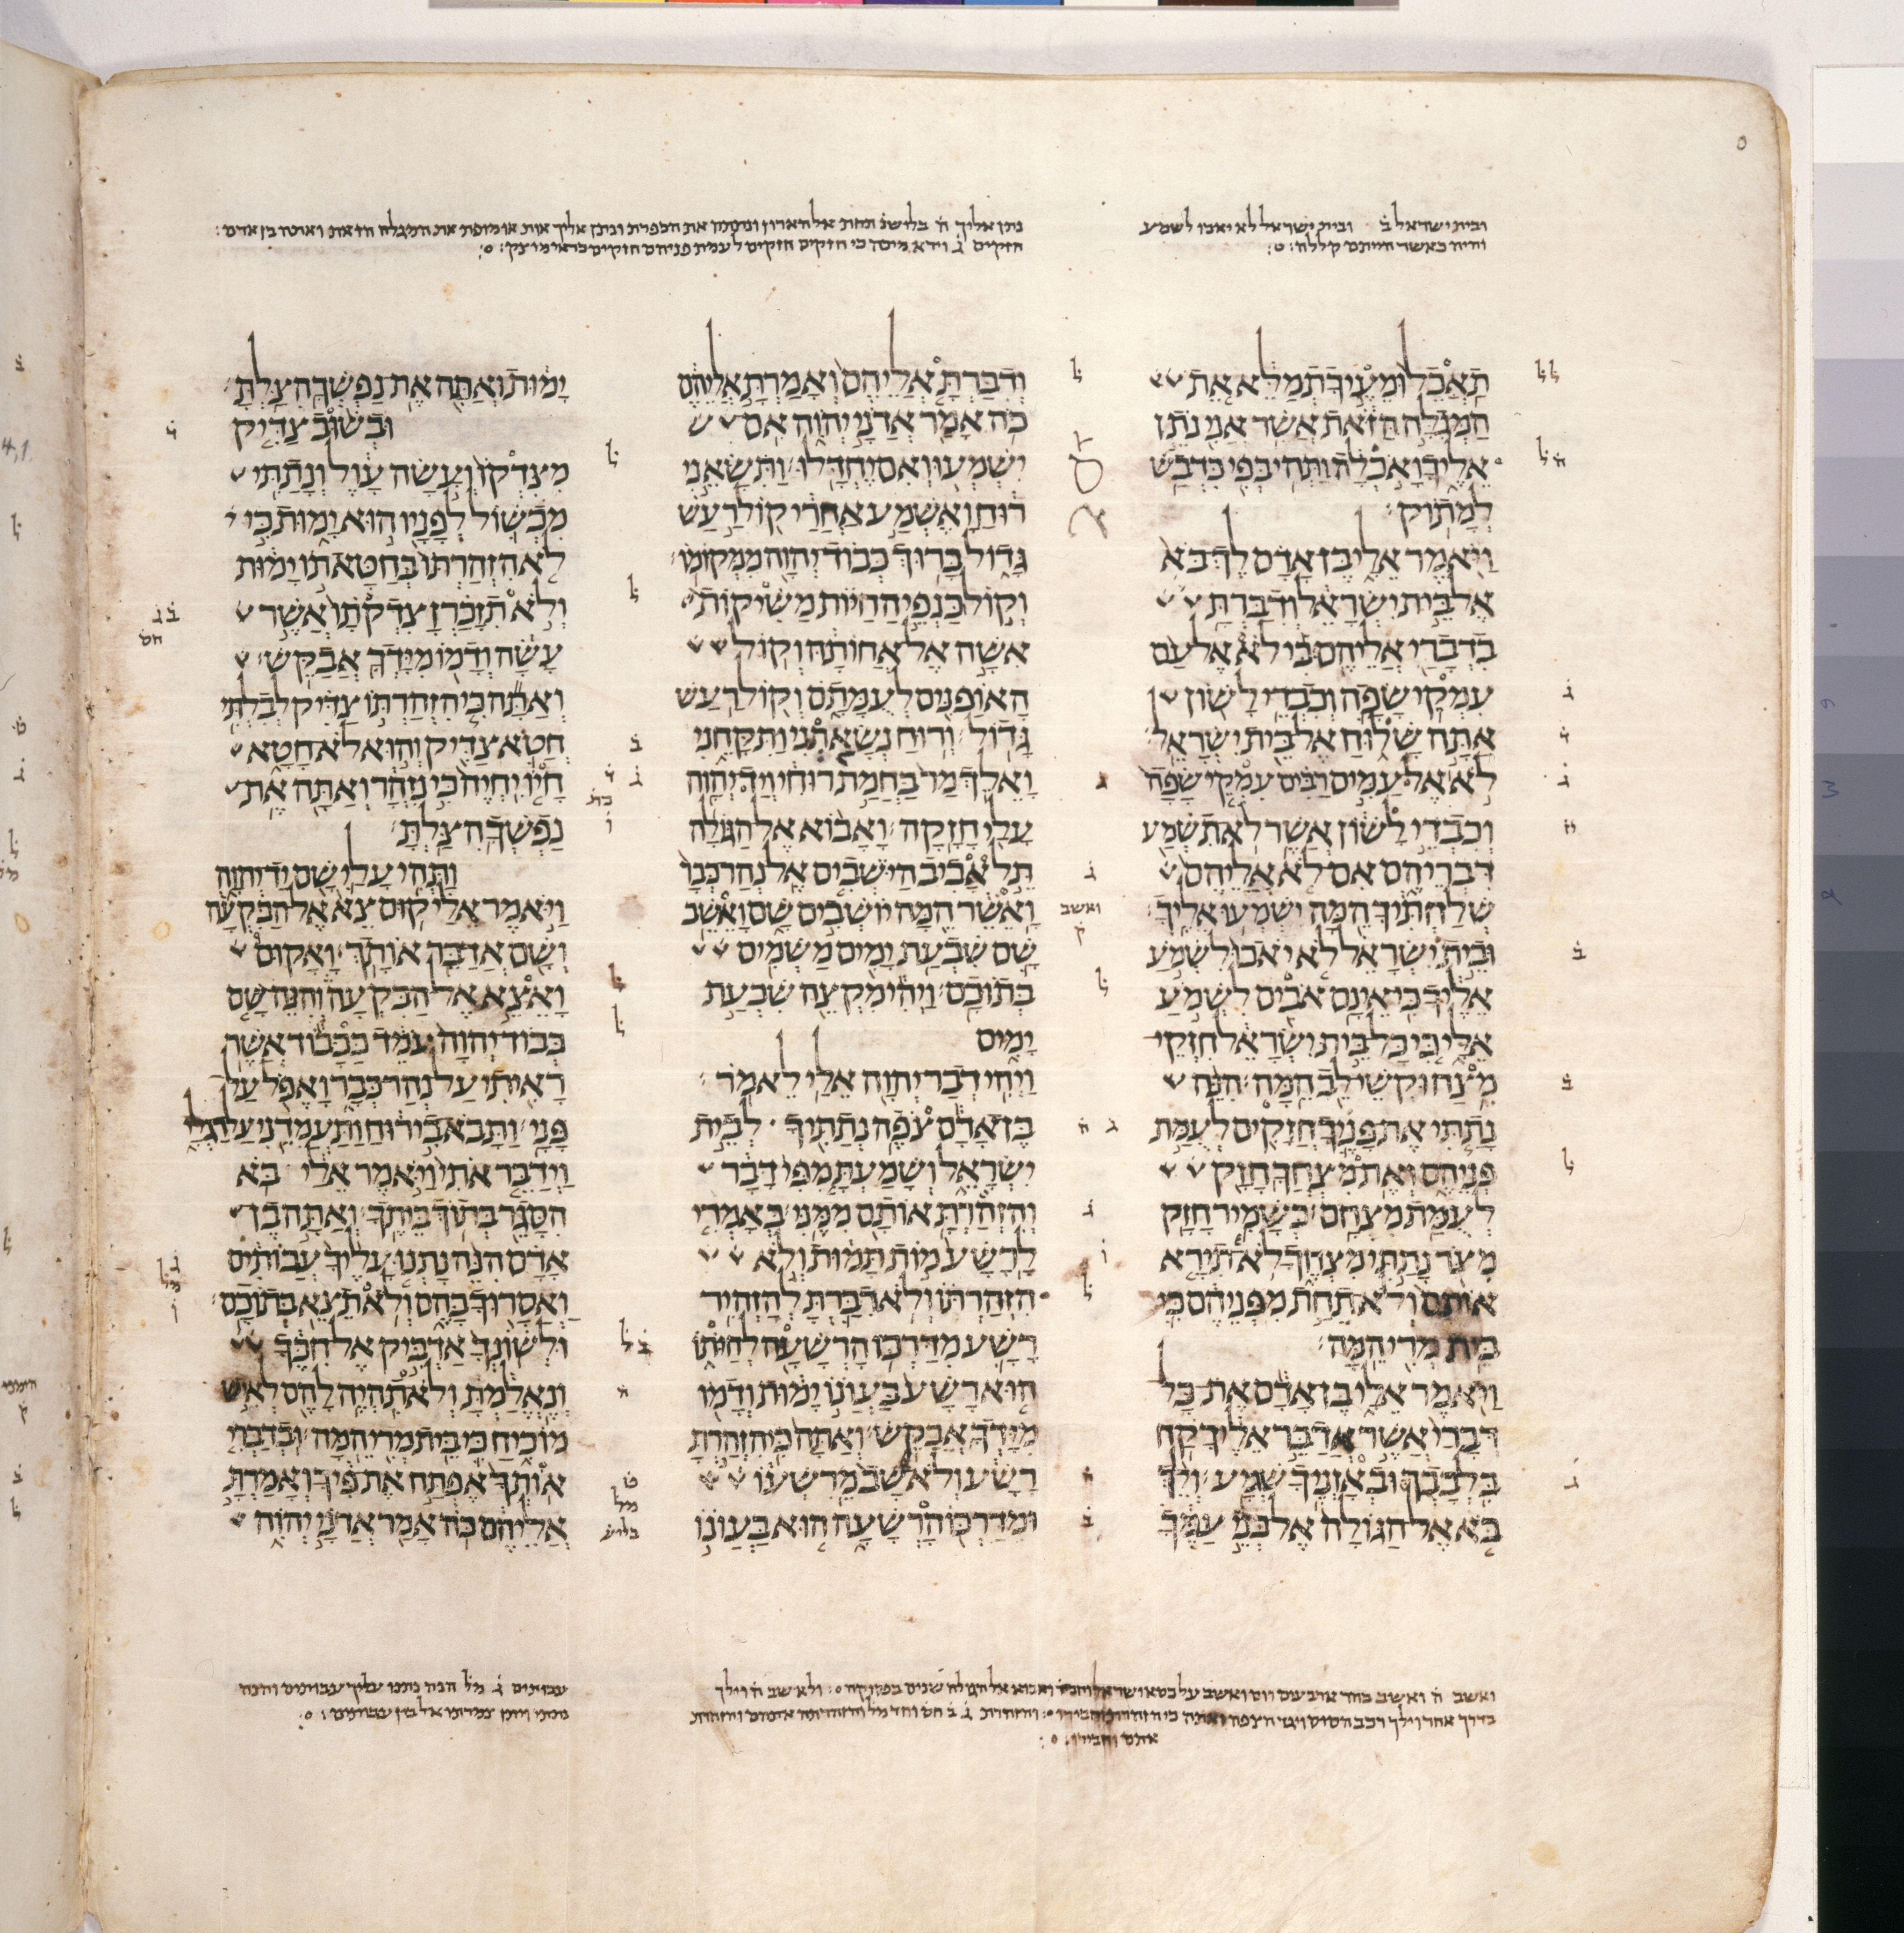 ובית ישראל ב ובית ישראל לא יאבו לשמע
והיה כאשר הייתם קללה
תאכל ומעיך תמלא את
המגלה הזאת אשר אני נתן
אליך ואכלה ותהי בפי כדבש
למתוק
ויאמר אלי בן אדם לך בא
אל בית ישראל ודברת
בדברי אליהם כי לא אל עם
עמקי שפה וכבדי לשון
אתה שלוח אל בית ישראל
לא אל עמים רבים עמקי שפה
וכבדי לשון אשר לא תשמע
דבריהם אם לא אליהם
שלחתיך המה ישמעו אליך
ובית ישראל לא יאבו לשמע
אליך כי אינם אבים לשמע
אלי כי כל בית ישראל חזקי
מצח וקשי לב המה הנה
נתתי את פניך חזקים לעמת
פניהם ואת מצחך חזק
לעמת מצחם כשמיר חזק
מצר נתתי מצחך לא תירא
אותם ולא תחת מפניהם כי
בית מרי המה
ויאמר אלי בן אדם את כל
דברי אשר אדבר אליך קח
בלבבך ובאזניך שמע ולך
בא אל הגולה אל בני עמך
נתן אליך ה בליש תחת אל הארון ונתתה את הכפרת ונתן אליך אות או מופת את המגלה הזאת ואתה בן אדם
חזקים לעמת פניהם חזקים כראי מוצק
ודברת אליהם ואמרת אליהם
כה אמר אדני יהוה אם
ישמעו ואם יחדלו ותשאני
רוח ואשמע אחרי קול רעש
גדול ברוך כבוד יהוה ממקומו
וקול כנפי החיות משיקות
אשה אל אחותה וקול
האופנים לעמתם וקול רעש
גדול ורוח נשאתני ותקחני
ואלך מר בחמת רוחי ויד יהוה
עלי חזקה ואבוא אל הגולה
תל אביב הישבים אל נהר כבר
ואשר המה יושבים שם ואשב
ואשב
ק
שם שבעת ימים משמים
בתוכם ויהי מקצה שבעת
ימים
ויהי דבר יהוה אלי לאמר
בן אדם צפה נתתיך לבית
ישראל ושמעת מפי דבר
והזהרת אותם ממני באמרי
לרשע מות תמות ולא
הזהרתו ולא דברת להזהיר
רשע מדרכו הרשעה לחיתו
הוא רשע בעונו ימות ודמו
מידך אבקש ואתה כי הזהרת
רשע ולא שב מרשעו
ומדרכו הרשעה הוא בעונו
ימות ואתה את נפשך הצלת
ובשוב צדיק
מצדקו ועשה עול ונתתי
מכשול לפניו הוא ימות כי
לא הזהרתו בחטאתו ימות
ולא תזכרן צדקתו אשר
עשה ודמו מידך אבקש
ואתה כי הזהרתו צדיק לבלתי
חטא צדיק והוא לא חטא
חיו יחיה כי נזהר ואתה את
נפשך הצלת
ותהי עלי שם יד יהוה
ויאמר אלי קום צא אל הבקעה
ושם אדבר אותך ואקום
ואצא אל הבקעה והנה שם
כבוד יהוה עמד ככבוד אשר
ראיתי על נהר כבר ואפל על
פני ותבא בי רוח ותעמדני על רגלי
וידבר אתי ויאמר אלי בא
הסגר בתוך ביתך ואתה בן
אדם הנה נתנו עליך עבותים
ואסרוך בהם ולא תצא בתוכם
ולשונך אדביק אל חכך
ונאלמת ולא תהיה להם לאיש
מוכיח כי בית מרי המה ובדברי
אותך אפתח את פיך ואמרת
אליהם כה אמר אדני יהוה
עבותים ג מל הנה נתנו עליך עבותים והנה